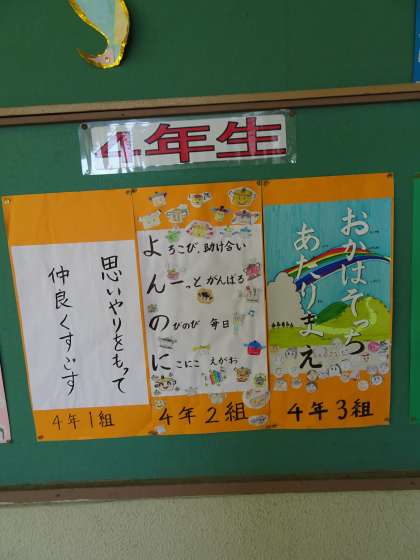 4年生
思いやりをもって
仲良くすごす
4年1組
よろこび、助け合い
んーっと がんばる
のびのび 毎日
にこにこ えがお
4年2組
おかはそうろ
あたりまえ
4年3組